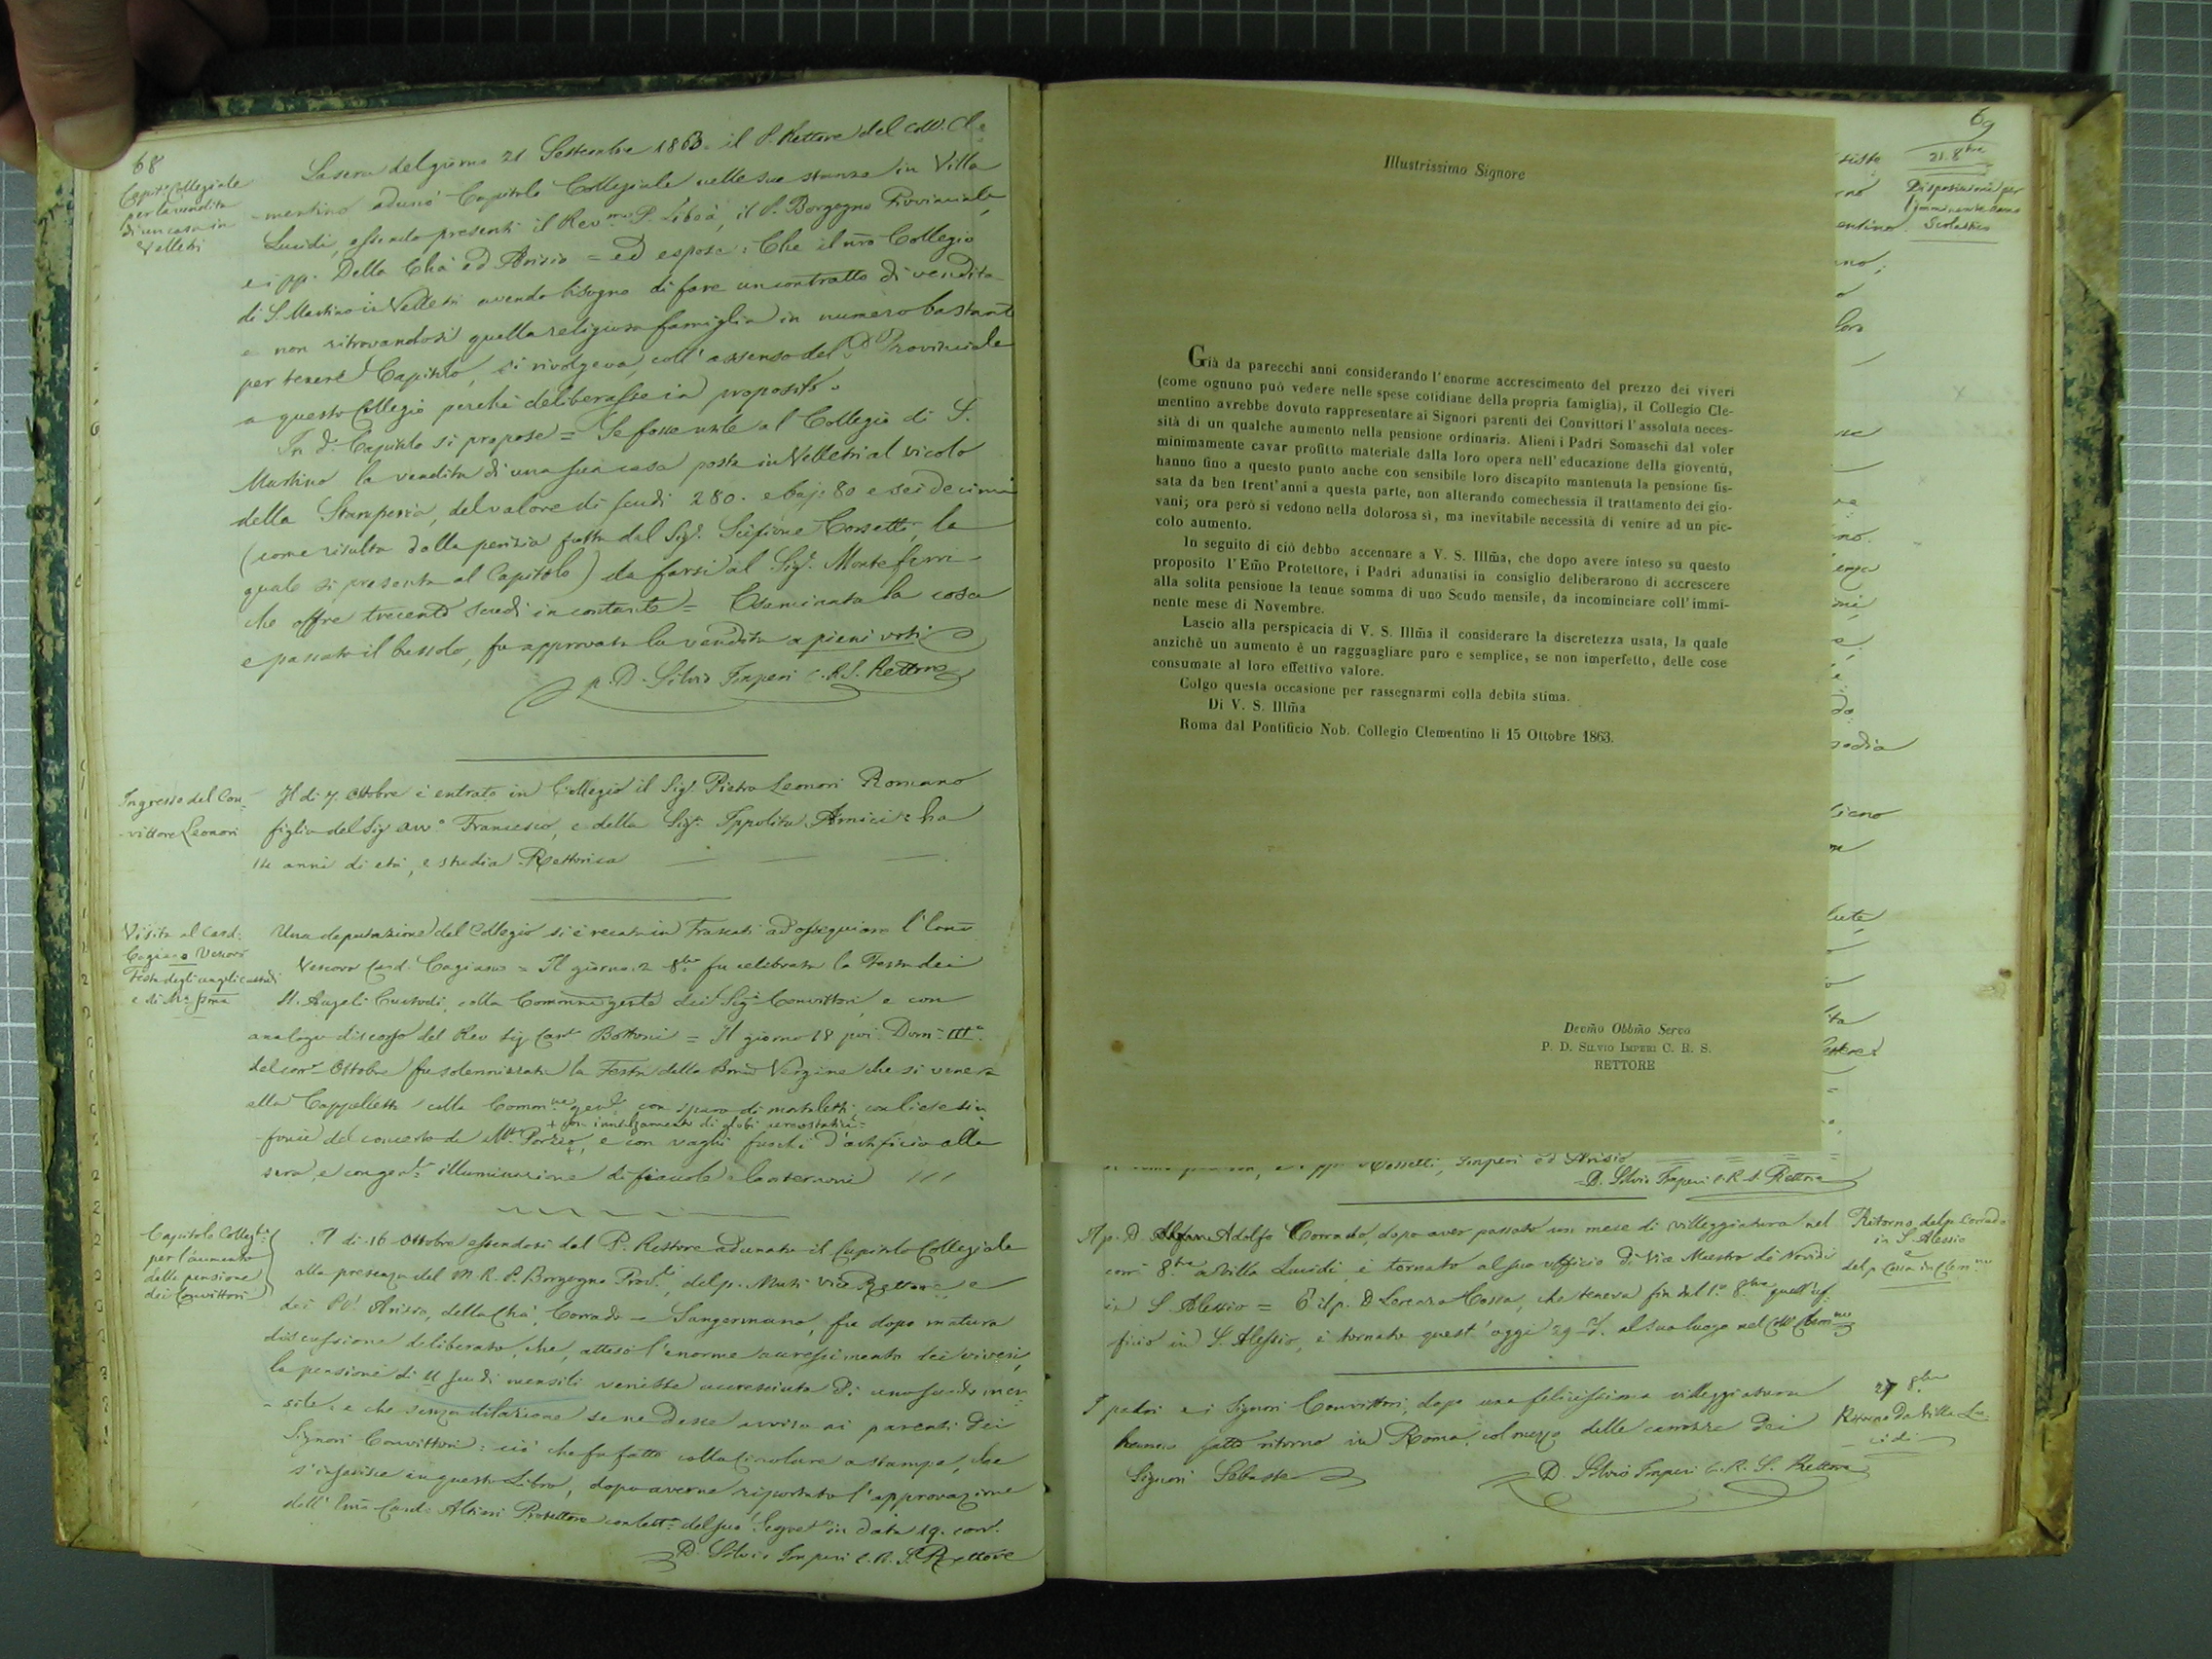 68
Capit.º Collegiale
per la vendita
di un casa in
Velletri
La sera del giorno 21 Settembre 1863. il P. Rettore del Coll. Cle
mentino adunò Capitolo Collegiale nelle sue stanze in Villa
Lucidi, essendo presenti il Rev.mo P. Liboà, il P. Borgogno Provinciale,
e i pp. Della Chà ed Arisio = ed espose: Che il nrõ Collegio
di S. Martino in Velletri avendo bisogno di fare un contratto di vendita
e non ritrovandosi quella religiosa famiglia in numero bastante
per tenere Capitolo, si rivolgeva, coll'assenso del P. Provinciale
a questo Collegio perchè deliberasse in proposito.
In d.º Capitolo si propose = Se fosse utile al Collegio di S.
Martino la vendita di una sua casa posta in Velletri al vicolo
della Stamperia, del valore di scudi 280. e baj: 80 e sei decimi
(come risulta dalla perizia fatta dal Sig.r Scifione Corsetti, la
quale si presenta al Capitolo) da farsi al Sig.r Monteferri
che offre trecento scudi in contante = Esaminata la cosa
e passato il bussolo, fu approvata la vendita a pieni voti
p. D. Silvio Imperi C.R.S. Rettore
Ingresso del Con-
-vittore Leonori
Il dì 7. Ottobre è entrato in Collegio il Sig.r Pietro Leonori Romano
figlio del Sig avv.º Francesco, e della Sig.ª Ippolita Amici: ha
14 anni di età, e studia Rettorica
Visita al Card.
Cagiano Vescovo
Festa degli angeli custodi
e di M.ª SSma
Una deputazione del Collegio si è recata in Frascati ad ossequiare l'Emõ
Vescovo Card. Cagiano = Il giorno 2 8bre fu celebrata la Festa dei
SS. Angeli Custodi, colla Comunione gen.le dei Sig.i Convittori, e con
analogo discorso del Rev Sig Can.º Bottoni = Il giorno 18 poi Dom. III.ª
del corr.e Ottobre fu solennizzata la Festa della Bma Vergine che si venera
alla Cappelletta colla Commne gen.le con sparo di mortaletti, con liete sin
fonie del concerto di M.te Porzio, + con innalzamento di globi aereostatici = e con vaghi fuochi d'artificio alla
sera, e con gen.le illuminazione di fiaccole e lanternoni
Capitolo Colleg.le
per l'aumento
della pensione
dei Convittori
Il dì 16 Ottobre essendosi dal P. Rettore adunato il Capitolo Collegiale
alla presenza del M. R. P. Borgogno Prov.le, del p. Muti Vice Rettore e
dei PP. Arisio, della Chà, Corrado e Sangermano, fu dopo matura
discussione deliberato, che, atteso l'enorme accrescimento dei viveri,
la pensione di 11 scudi mensili venisse accresciuta di uno scudo men-
-sile, e che senza dilazione se ne desse avviso ai parenti dei
Signori Convittori: ciò che fu fatto colla circolare a stampa, che
s'inserisce in questo Libro, dopo averne riportata l'approvazione
dell'Emõ Card. Altieri Protettore con lett.ª del suo Segret.º in data 19. corr.
P. D. Silvio Imperi C. R. S. Rettore
Illustrissimo Signore
Già da parecchi anni considerando l'enorme accrescimento del prezzo dei viveri
(come ognuno può vedere nelle spese cotidiane della propria famiglia), il Collegio Cle-
mentino avrebbe dovuto rappresentare ai Signori parenti dei Convittori l'assoluta neces-
sità di un qualche aumento nella pensione ordinaria. Alieni i Padri Somaschi dal voler
minimamente cavar profitto materiale dalla loro opera nell'educazione della gioventù,
hanno fino a questo punto anche con sensibile loro discapito mantenuta la pensione fis-
sata da ben trent'anni a questa parte, non alterando comechessia il trattamento dei gio-
vani; ora però si vedono nella dolorosa sì, ma inevitabile necessità di venire ad un pic-
colo aumento.
In seguito di ciò debbo accennare a V. S. Illm̃a, che dopo avere inteso su questo
proposito l'Em̃o Protettore, i Padri adunatisi in consiglio deliberarono di accrescere
alla solita pensione la tenue somma di uno Scudo mensile, da incominciare coll'immi-
nente mese di Novembre.
Lascio alla perspicacia di V. S. Illm̃a il considerare la discretezza usata, la quale
anzichè un aumento è un ragguagliare puro e semplice, se non imperfetto, delle cose
consumate al loro effettivo valore.
Colgo questa occasione per rassegnarmi colla debita stima.
Di V. S. Illm̃a
Roma dal Pontificio Nob. Collegio Clementino li 15 Ottobre 1863.
Devm̃o Obbm̃o Servo
P. D. SILVIO IMPERI C. R. S.
RETTORE
69
21. 8bre
Disposizioni per
l'imminente anno
Scolastico
Rossetti, Imperi ed Arisio
D. Silvio Imperi C. R. S. Rettore
Il p. D. Adolfo Corrado, dopo aver passato un mese di villeggiatura nel
corr.e 8bre a Villa Lucidi, è tornato al suo ufficio di Vice Maestro dè Novizi
in S. Alessio = E il p. D. Lorenzo Cossa, che teneva fin dal 1.º 8bre quell'uf-
ficio in S. Alessio, è tornato quest'oggi 29 d. al suo luogo nel Coll. Clem.no
Ritorno del p. Corrado
in S. Alessio
e
del p Cossa in Clem.no
I padri e i Signori Convittori, dopo una felicissima villeggiatura
hanno fatto ritorno in Roma, col mezzo delle carrozze dei
Signori Sebaste
D. Silvio Imperi C. R. S. Rettore
27 8bre
Ritorno da Villa Lu-
cidi